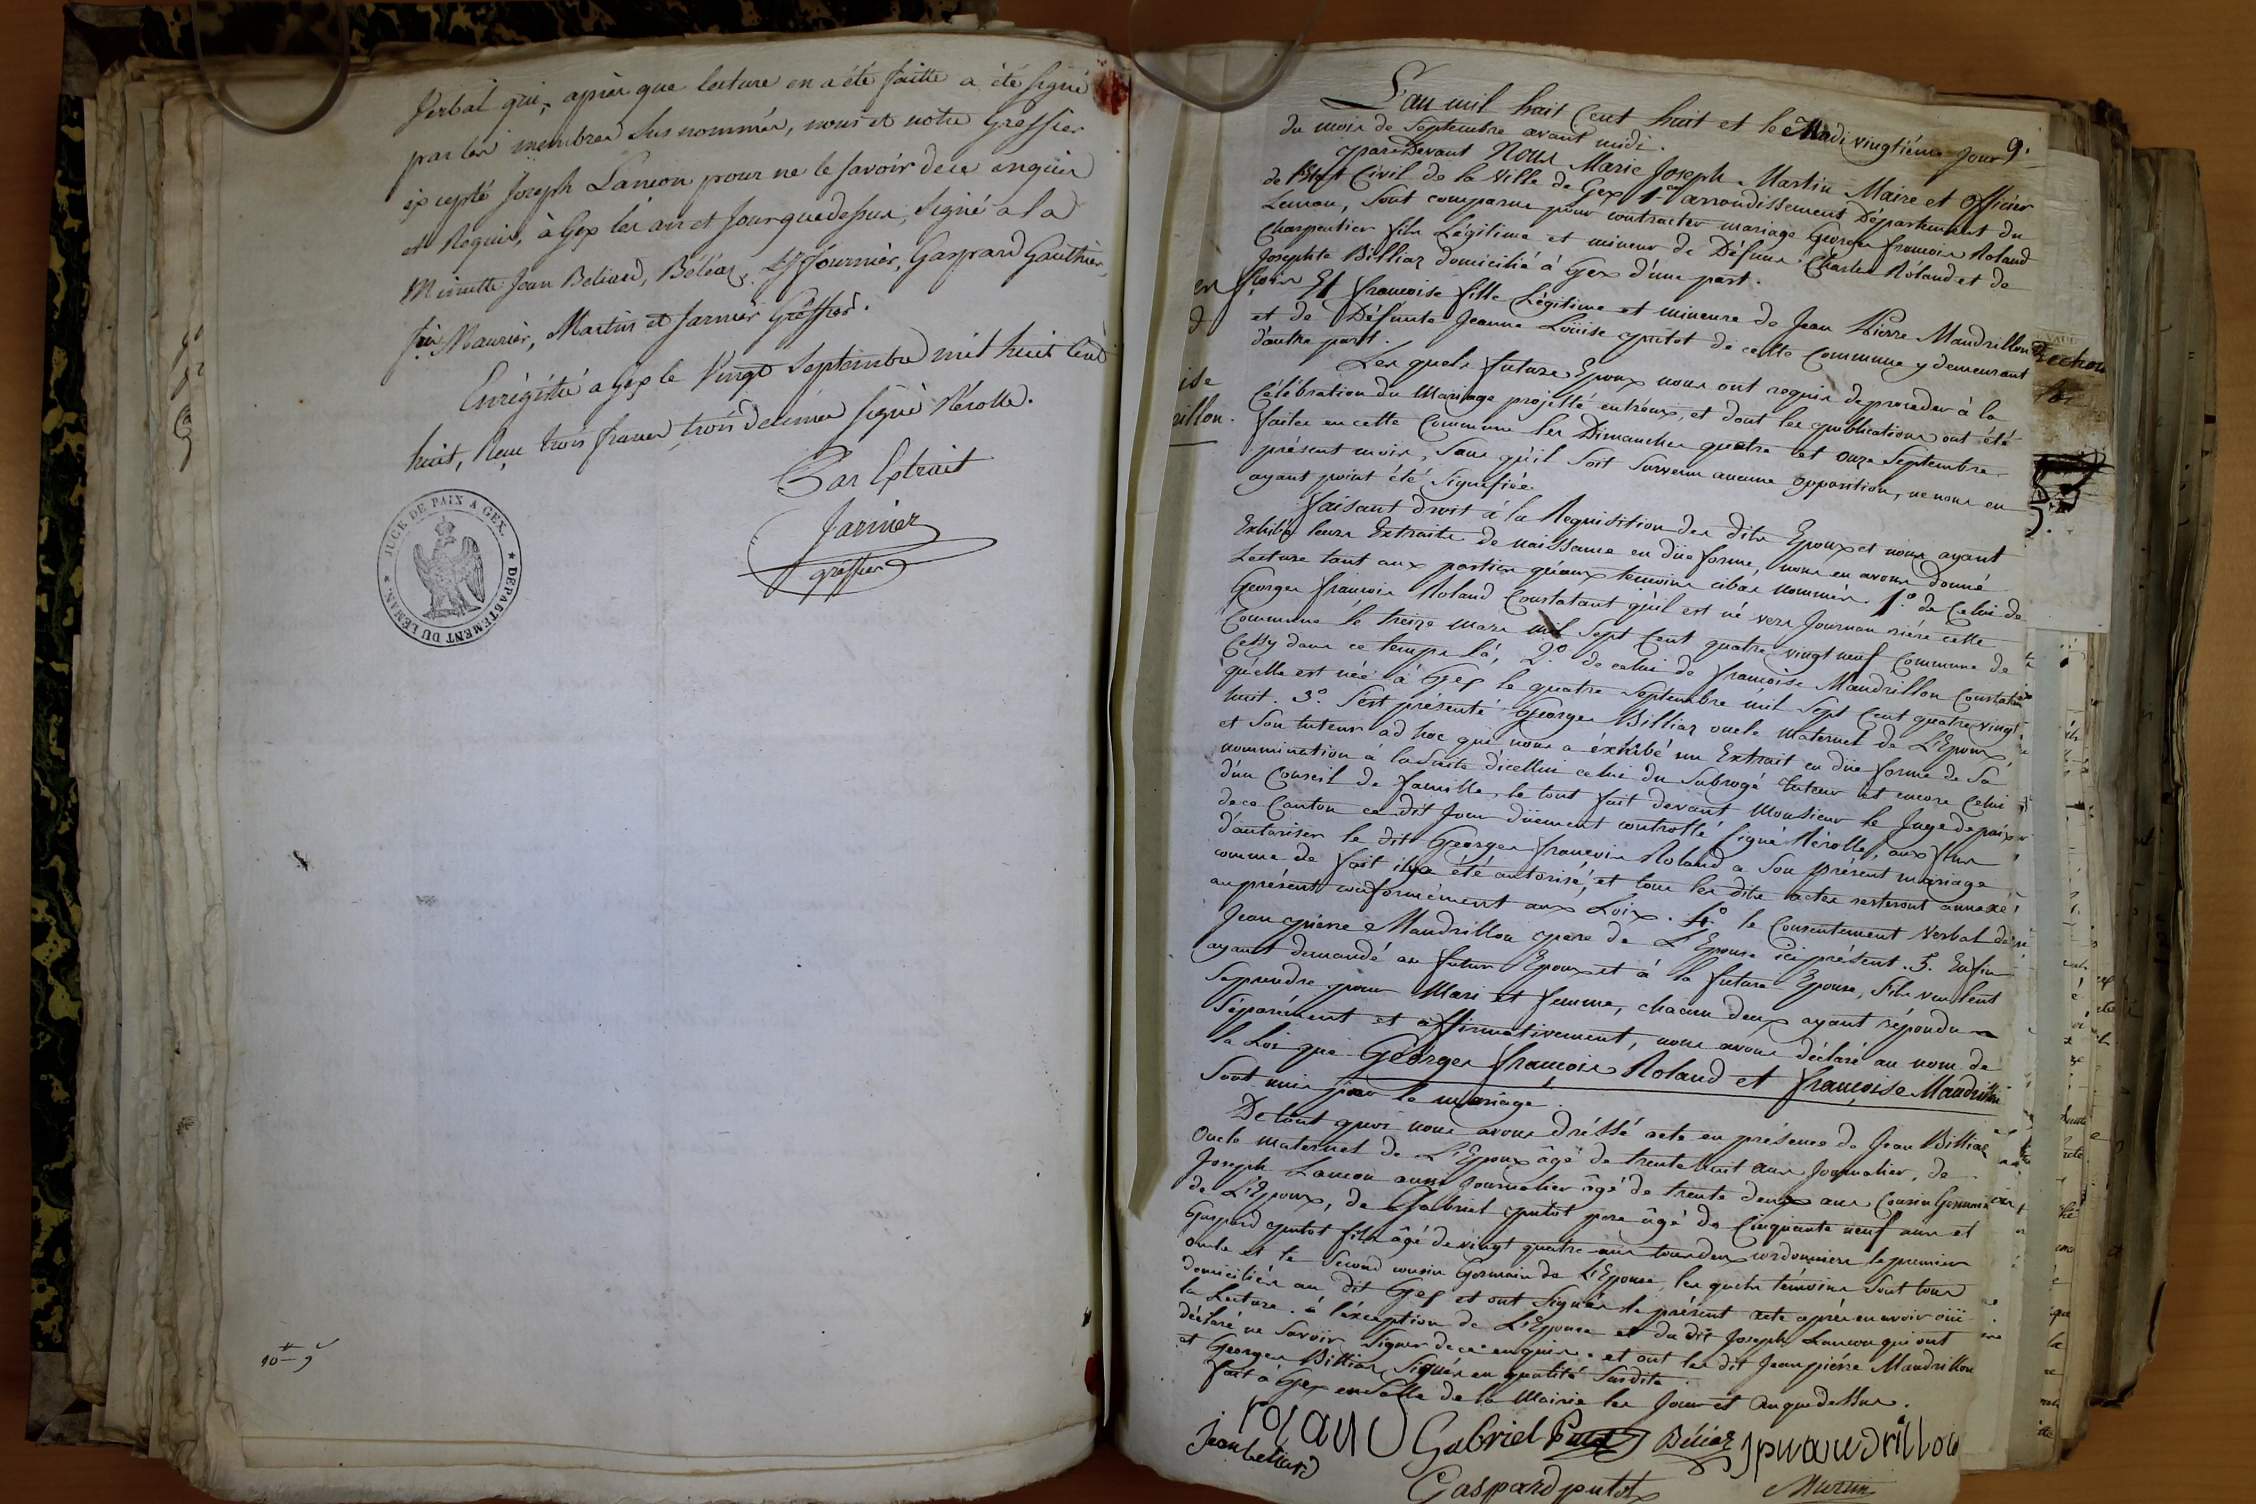 Verbal qui, après que lecture en a été faitte a été signé
par les membres sus nommés, nous et notre Greffier
éxcepté Joseph Lancon pour ne le savoir de ce enquis
et Requis, à Gex les an et jour que dessus, signé a la
Minutte Jean Beliard, Béléaz, Gaspard Gauthier,
Maurier, Martin et Jarnier Greffier.
Enrégistré a Gex le Vingt Septembre mil huit Cent
huit, Reçu trois francs trois décimes signé Nérolle.
Par Extrait
Jarnier
greffier
JUGE DE PAIX A GEX. * DEPARTEMENT DU LEMAN. *
L'an mil huit Cent huit et le Mardi vingtiéme Jour 9.
du mois de Septembre avant midi.
pardevant Nous Marie Joseph Martin Maire et officier
de l'Etat Civil de la Ville de Gex arrondissement Département du
Leman, Sont comparus pour contracter mariage George françois Roland
Charpentier fils Légitime et mineur de Défunt Charles Roland et de
Josephte Billiaz domicilié à Gex d'une part.
Et françoise fille Légitime et mineure de Jean Pierre Mandrillon
et de Défunte Jeanne Loüise putot de cette Commune y demeurant
d'autre part.
Les quels futurs Epoux nous ont requis de proceder à la
Célébration du Mariage projetté entr'eux, et dont les publications ont été
faites en cette Commune les Dimanches quatre et onze Septembre
présent mois, Sans qu'il Soit Survenu aucune opposition, ne nous en
ayant point été Signifiée.
faisant droit à la Requisition des dits Epoux et nous ayant
Exhibés leurs Extraits de naissance en düe forme, nous en avons donné
Lecture tant aux parties qu'aux temoins cibas nommés. 1.º de Celui de
George françois Roland Constatant qu'il est né vers Journan rière cette
Commune le treize mars mil Sept Cent quatre vingt neuf Commune de
Cessy dans ce temps là, 2.º de celui de françoise Mandrillon Constatant
qu'elle est née à Gex le quatre Septembre mil Sept Cent quatre vingt
huit. 3.º S'est présenté George Billiaz oncle maternel de L'Epoux,
et Son tuteur ad hoc qui nous a éxhibé un Extrait en düe forme de Sa
nommination à la Suite d'icellui celui du Subrogé tuteur et encore Celui
d'un Conseil de famille, le tout fait devant Monsieur le Juge de paix
de ce Canton ce dit Jour düement controllé signé Nérolle, aux fins
d'autoriser le dit George françois Roland a Son présent mariage
comme de fait il a été autorisé, et tous les dits actes resteront annexé
au présent conformément aux Loix. 4.º le Consentement Verbal de
Jean pierre Mandrillon pere de L'Epouse ici présent. 5. Enfin
ayant demandé au futur Epoux et à la future Epouse, S'ils veulent
Se prendre pour Mari et femme, chacun deux ayant répondu
Séparément et affirmativement, nous avons déclaré au nom de
la Loi que George françois Roland et françoise Mandrillon
Sont unis par le mariage.
De tout quoi nous avons dréssé acte en présence de Jean Billiaz
Oncle maternel de L'Epoux âgé de trente huit ans Journalier, de
Joseph Lancon aussi Journalier âgé de trente deux ans Cousin Germain
de L'Epoux, de Gabriel putot pere âgé de Cinquante neuf ans et
Gaspard putot fils âgé de vingt quatre ans tous deux cordonniers le premier
oncle et le Second cousin Germain de L'Epouse, les quels témoins Sont tous
domiciliés au dit Gex et ont Signés le présent acte après en avoir oüi
la Lecture. à léxception de L'Epouse et du dit Joseph Lancon qui ont
déclaré ne Savoir Signer de ce enquis. et ont les dit Jean pierre Mandrillon
et George Billiaz Signés en qualité Susdite.
fait à Gex en Salle de la Mairie les Jour et an que dessus.
roland Gabriel Putot Béliaz jpmandrillon
Jean beliard
Gaspard putot Martin